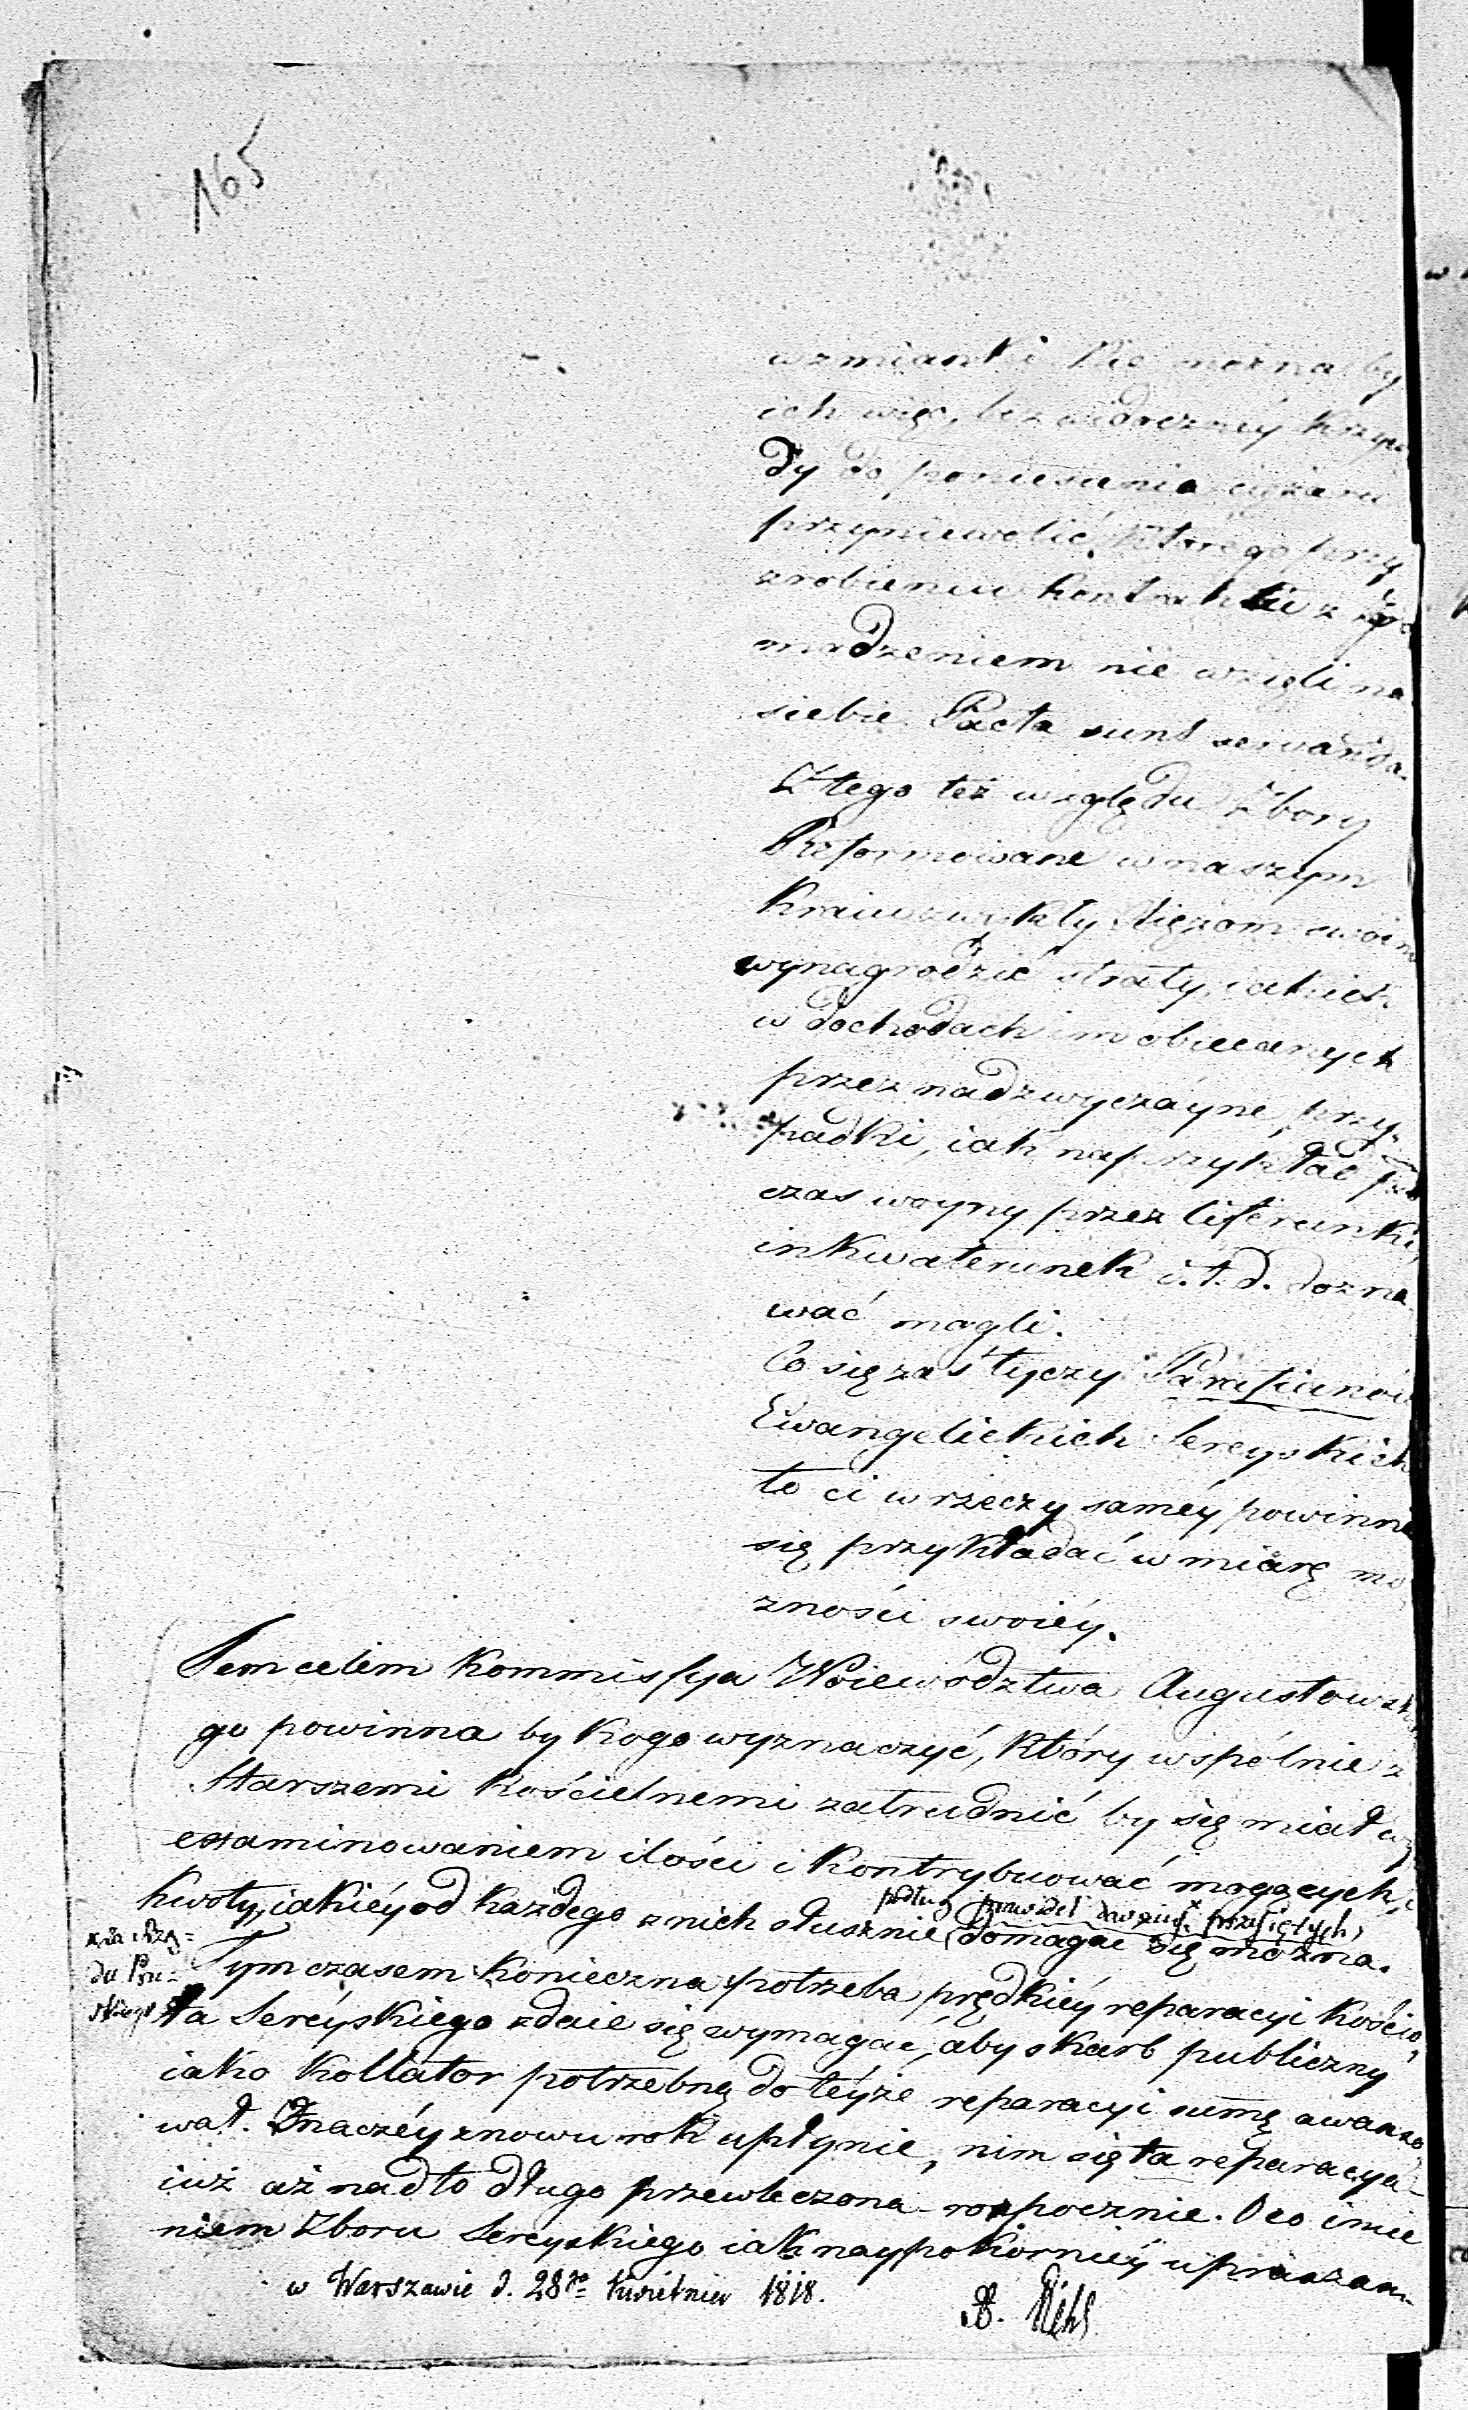 165
wzmianki. Nie można by
ich więc, bez widoczney krzyw
dy do poniesienia ciężaru
przyniewolić, którego przy
zrobieniu kontraktu z zgro
madzeniem nie wzięli na
siebie. Pacta sunt servanda.
Z tego też względu Zbory
Reformowane w naszym
Kraiu zwykły Xiężom swoim
wynagrodzić straty, iakich
w dochodach im obiecanych
przez nadzwyczayne przy-
padki, iak naprzykład pod
czas woyny przez liferunki,
inkwaterunek i.t.d. dozna
wać mogli.
Co się zaś tyczy Parafianów
Ewangelickich Sereyskich
to ci w rzeczy saméy powinni
się przykładać w miarę mo
żności swoiéy.
Tem celem Kommissyja Woiewództwa Augustowskie
go powinna by kogo wyznaczyć, który wspólnie z
Starszemi Kościelnemi zatrudnić by się miał wy
examinowaniem ilości i kontrybuować mogących, i
podług prawideł przyiętych
kwoty, iakiéy od każdego z nich słusznie domagać się można.
za Rzą=
du Pru=
skiego
Tymczasem konieczna potrzeba prędkiéy reparacyi Kościo
ła Sereyskiego zdaie się wymagać, aby skarb publiczny
iako Kollator potrzebną do téyże reparacyi summę awanso
wał. Inaczéy znowu rok upłynie, nim się ta reparacya
iuż aż nadto długo przewleczona rozpocznie. O co imie
niem Zboru Sereyskiego iak naypokorniéy upraszam.
w Warszawie d. 28go Kwietnia 1818.